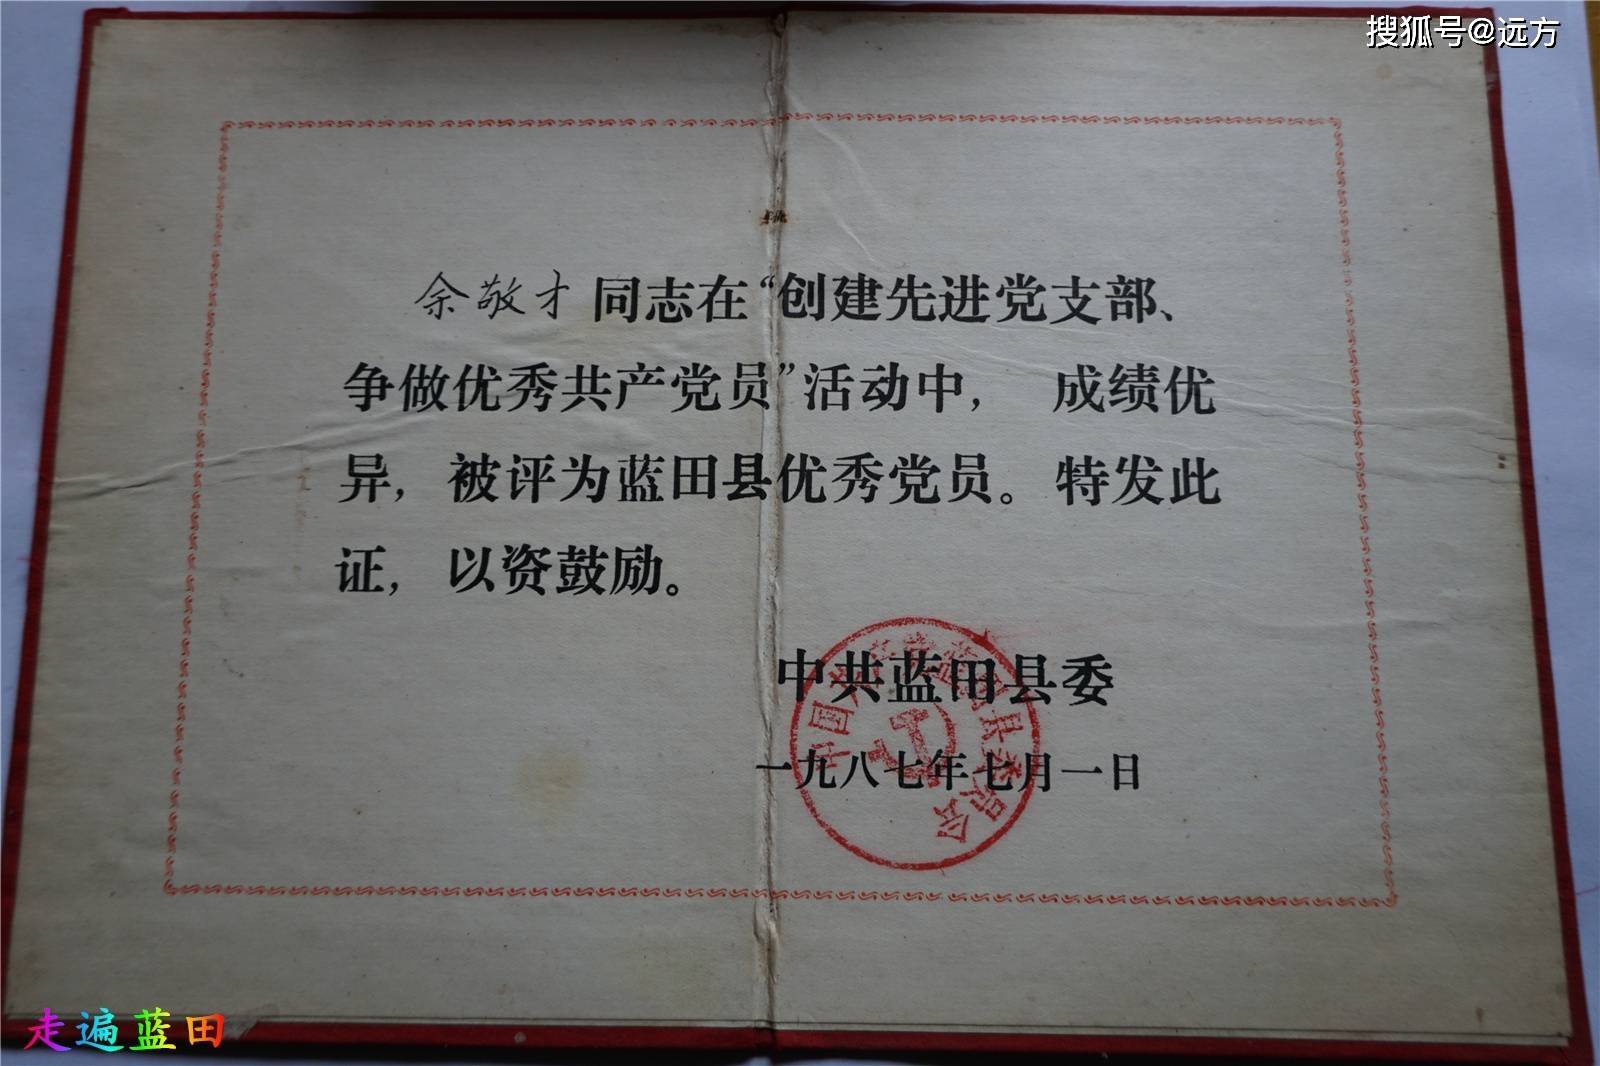 搜狐号@远方
余敬才 同志在“创建先进党支部、
争做优秀共产党员”活动中， 成绩优
异，被评为蓝田县优秀党员。特发此
证，以资鼓励。
中共蓝田县委
一九八七年七月一日
中国共产党蓝田县委员会
走遍蓝田